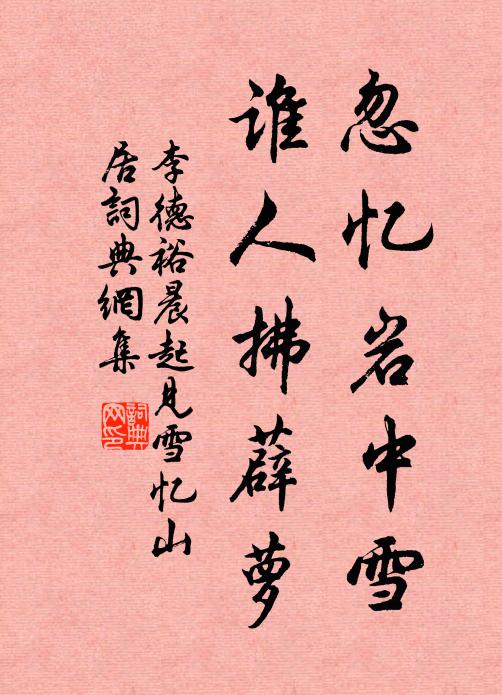 忽忆岩中雪
谁人拂薜萝
李德裕晨起见雪忆山
居詞典網集
詞典
网印